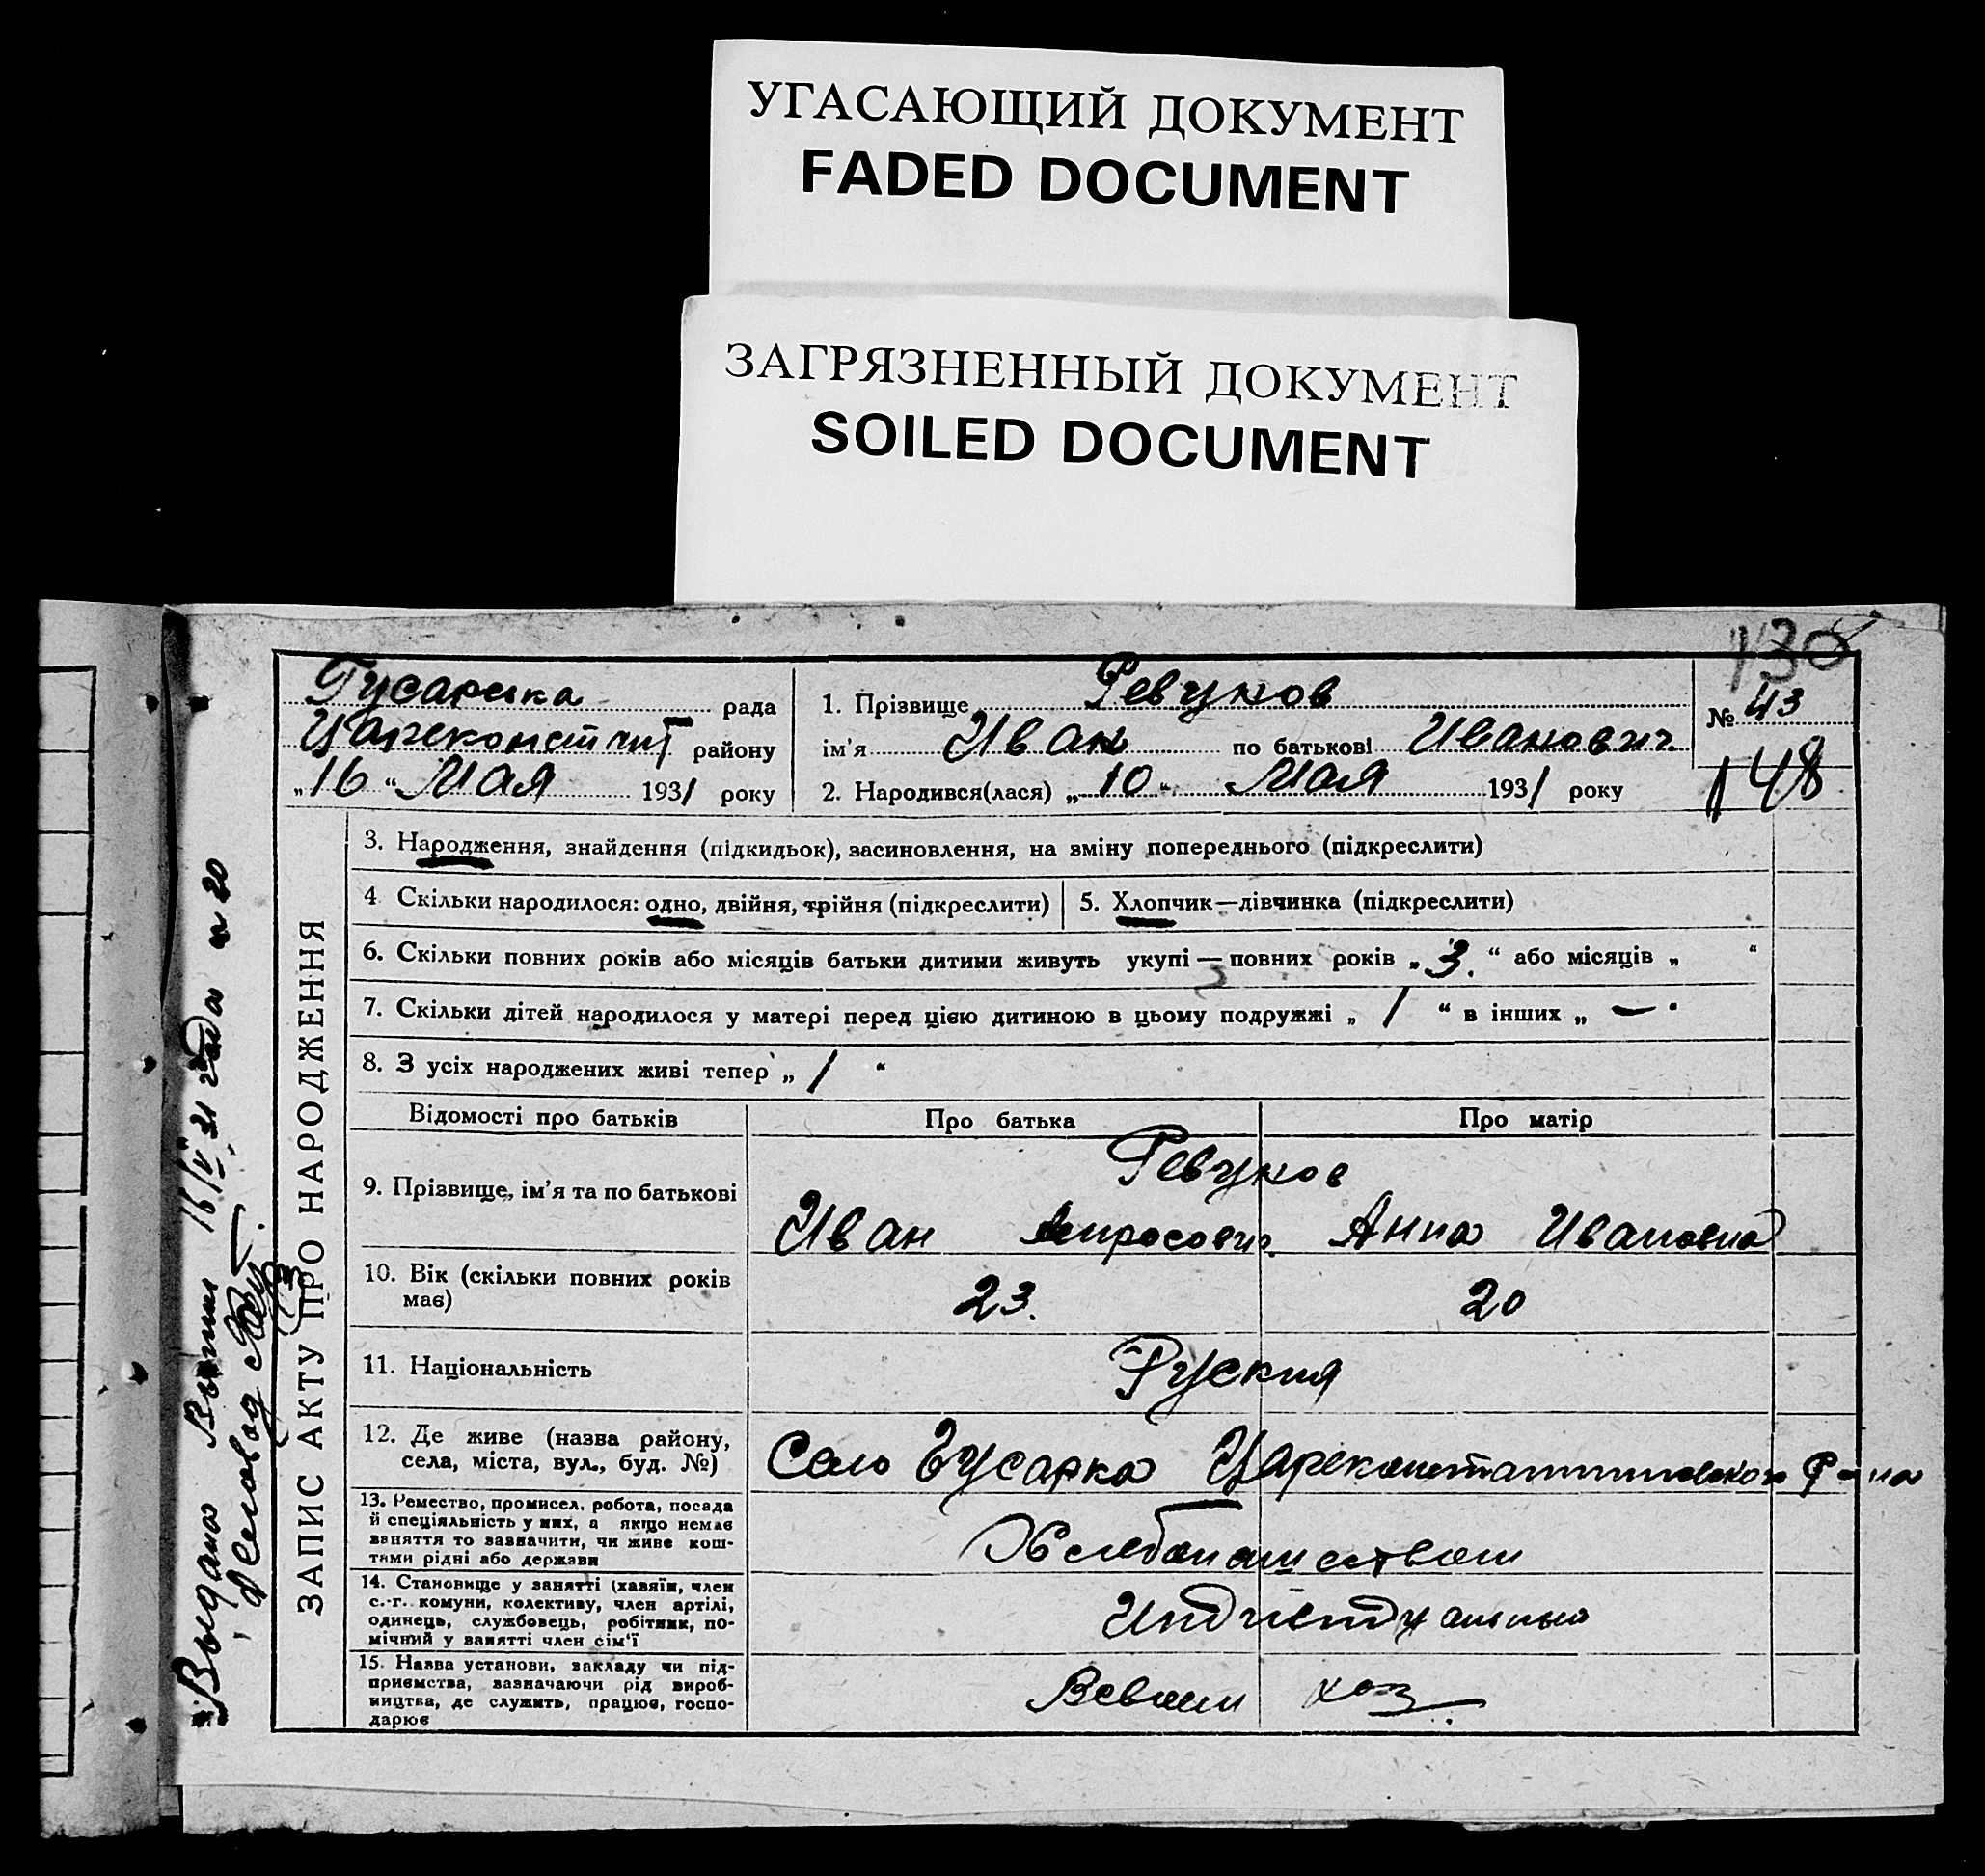 УГАСАЮЩИЙ ДОКУМЕНТ
FADED DOCUMENT
ЗАГРЯЗНЕННЫЙ ДОКУМЕНТ
SOILED DOCUMENT
130
Гусарска рада
Цареконстант району
„16“ Мая 1931 року
1. Прізвище Ревуков
ім'я Иван по батькові Иванович
2. Народився(лася) „10“ Мая 1931 року
№ 43
148
ЗАПИС АКТУ ПРО НАРОДЖЕННЯ
3. Народження, знайдення (підкидьок), засиновлення, на зміну попереднього (підкреслити)
4. Скільки народилося: одно, двійня, трійня (підкреслити)
5. Хлопчик—дівчинка (підкреслити)
6. Скільки повних років або місяців батьки дитини живуть укупі — повних років „3.“ або місяців „ “
7. Скільки дітей народилося у матері перед цією дитиною в цьому подружжі „ / “ в інших „ — “
8. З усіх народжених живі тепер „ / “
Відомості про батьків
Про батька
Про матір
9. Прізвище, ім'я та по батькові
Ревуков
Иван
Анна Ивановна
10. Вік (скільки повних років
має)
23.
20
11. Національність
Руския
12. Де живе (назва району,
села, міста, вул., буд. №)
Село Гусарка Цареконстантиновского Р-на
13. Ремество, промисел, робота, посада
й спеціяльність у них, а якщо немає
заняття то зазначити, чи живе кош-
тями рідні або держави
Хлебопашеством
14. Становище у занятті (хазяїн, член
с.-г. комуни, колективу, член артілі,
одинець, службовець, робітник, по-
мічний у занятті член сім'ї
15. Назва установи, закладу чи під-
приємства, зазначаючи рід вироб-
ництва, де служить, працює, госпо-
дарює
Всвоем хоз
Выдана 16/V 31 года № 20
Деловод